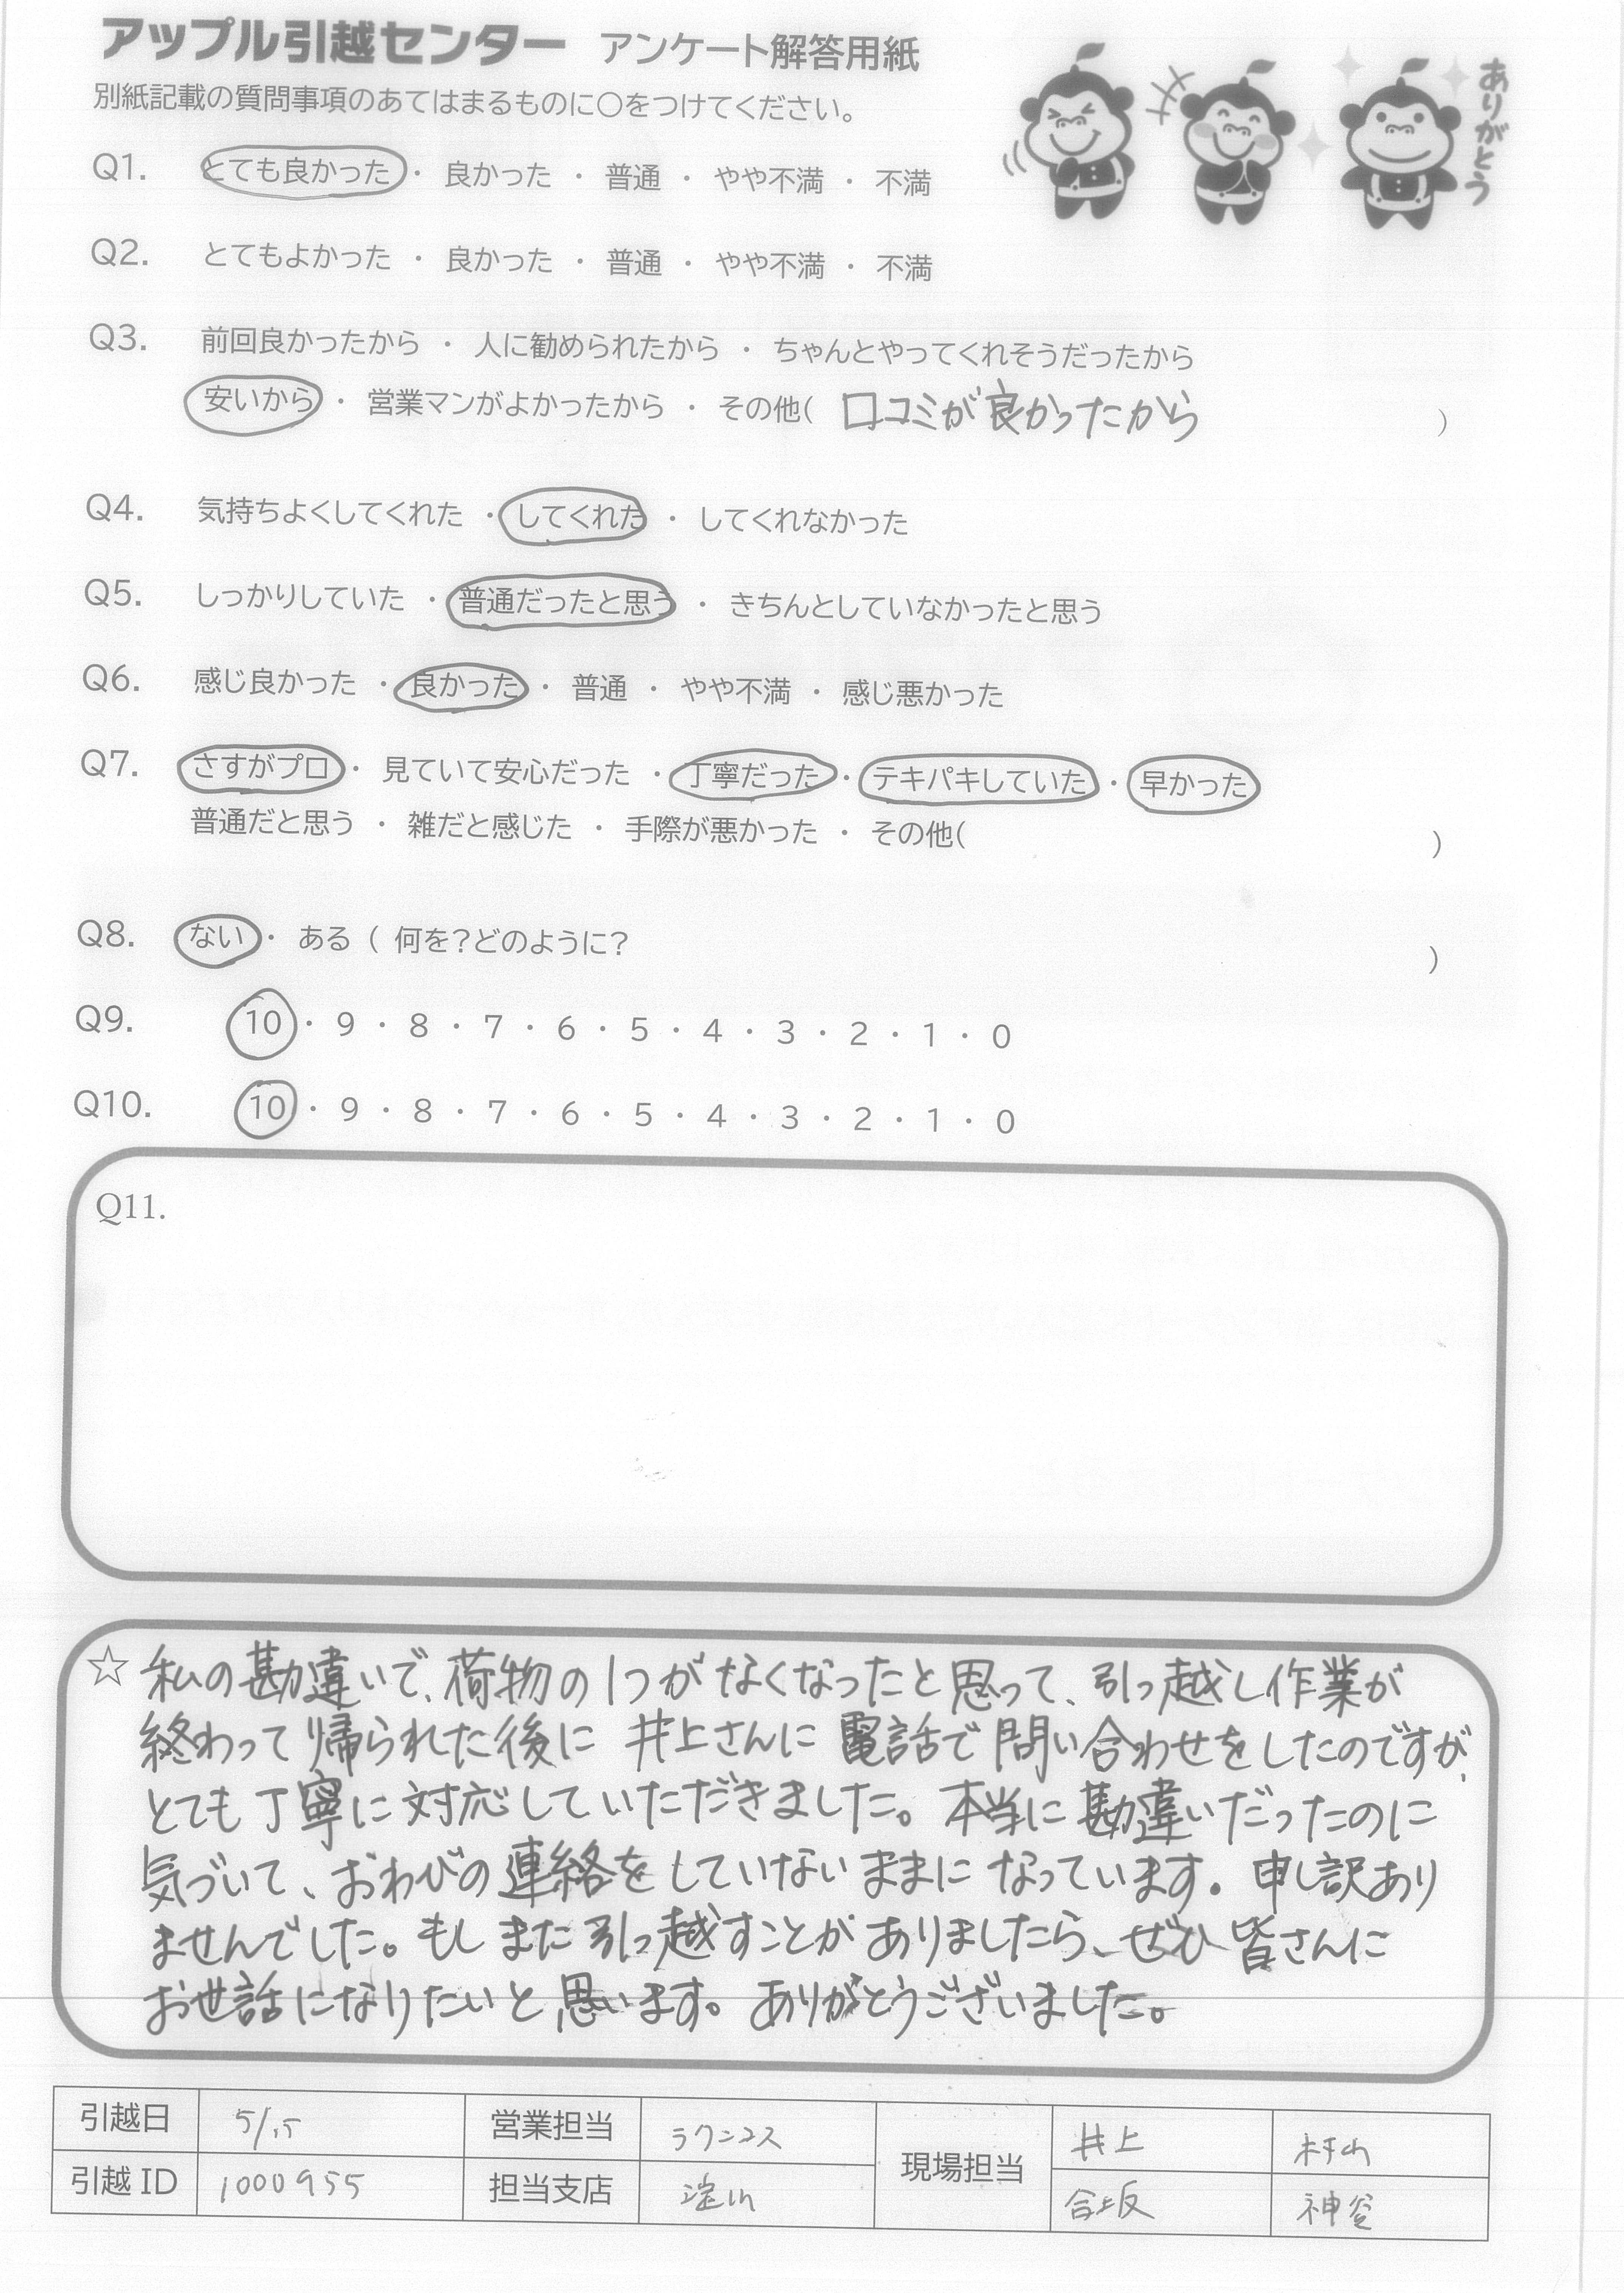 アップル引越センター アンケート解答用紙
別紙記載の質問事項のあてはまるものに〇をつけてください。
ありがとう
Q1. とても良かった ・ 良かった ・ 普通 ・ やや不満 ・ 不満
Q2. とてもよかった ・ 良かった ・ 普通 ・ やや不満 ・ 不満
Q3. 前回良かったから ・ 人に勧められたから ・ ちゃんとやってくれそうだったから
安いから ・ 営業マンがよかったから ・ その他( 口コミが良かったから )
Q4. 気持ちよくしてくれた ・ してくれた ・ してくれなかった
Q5. しっかりしていた ・ 普通だったと思う ・ きちんとしていなかったと思う
Q6. 感じ良かった ・ 良かった ・ 普通 ・ やや不満 ・ 感じ悪かった
Q7. さすがプロ ・ 見ていて安心だった ・ 丁寧だった ・ テキパキしていた ・ 早かった
普通だと思う ・ 雑だと感じた ・ 手際が悪かった ・ その他( )
Q8. ない ・ ある ( 何を?どのように? )
Q9. 10 ・ 9 ・ 8 ・ 7 ・ 6 ・ 5 ・ 4 ・ 3 ・ 2 ・ 1 ・ 0
Q10. 10 ・ 9 ・ 8 ・ 7 ・ 6 ・ 5 ・ 4 ・ 3 ・ 2 ・ 1 ・ 0
Q11.
☆ 私の勘違いで、荷物の1つがなくなったと思って、引っ越し作業が
終わって帰られた後に 井上さんに 電話で問い合わせをしたのですが、
とても丁寧に対応していただきました。本当に勘違いだったのに
気づいて、おわびの連絡をしていないままになっています。申し訳あり
ませんでした。もしまた引っ越すことがありましたら、ぜひ皆さんに
お世話になりたいと思います。ありがとうございました。
引越日 5/15 営業担当 ラクニコス 現場担当 井上 村山
引越ID 1000955 担当支店 淀川 合坂 神谷